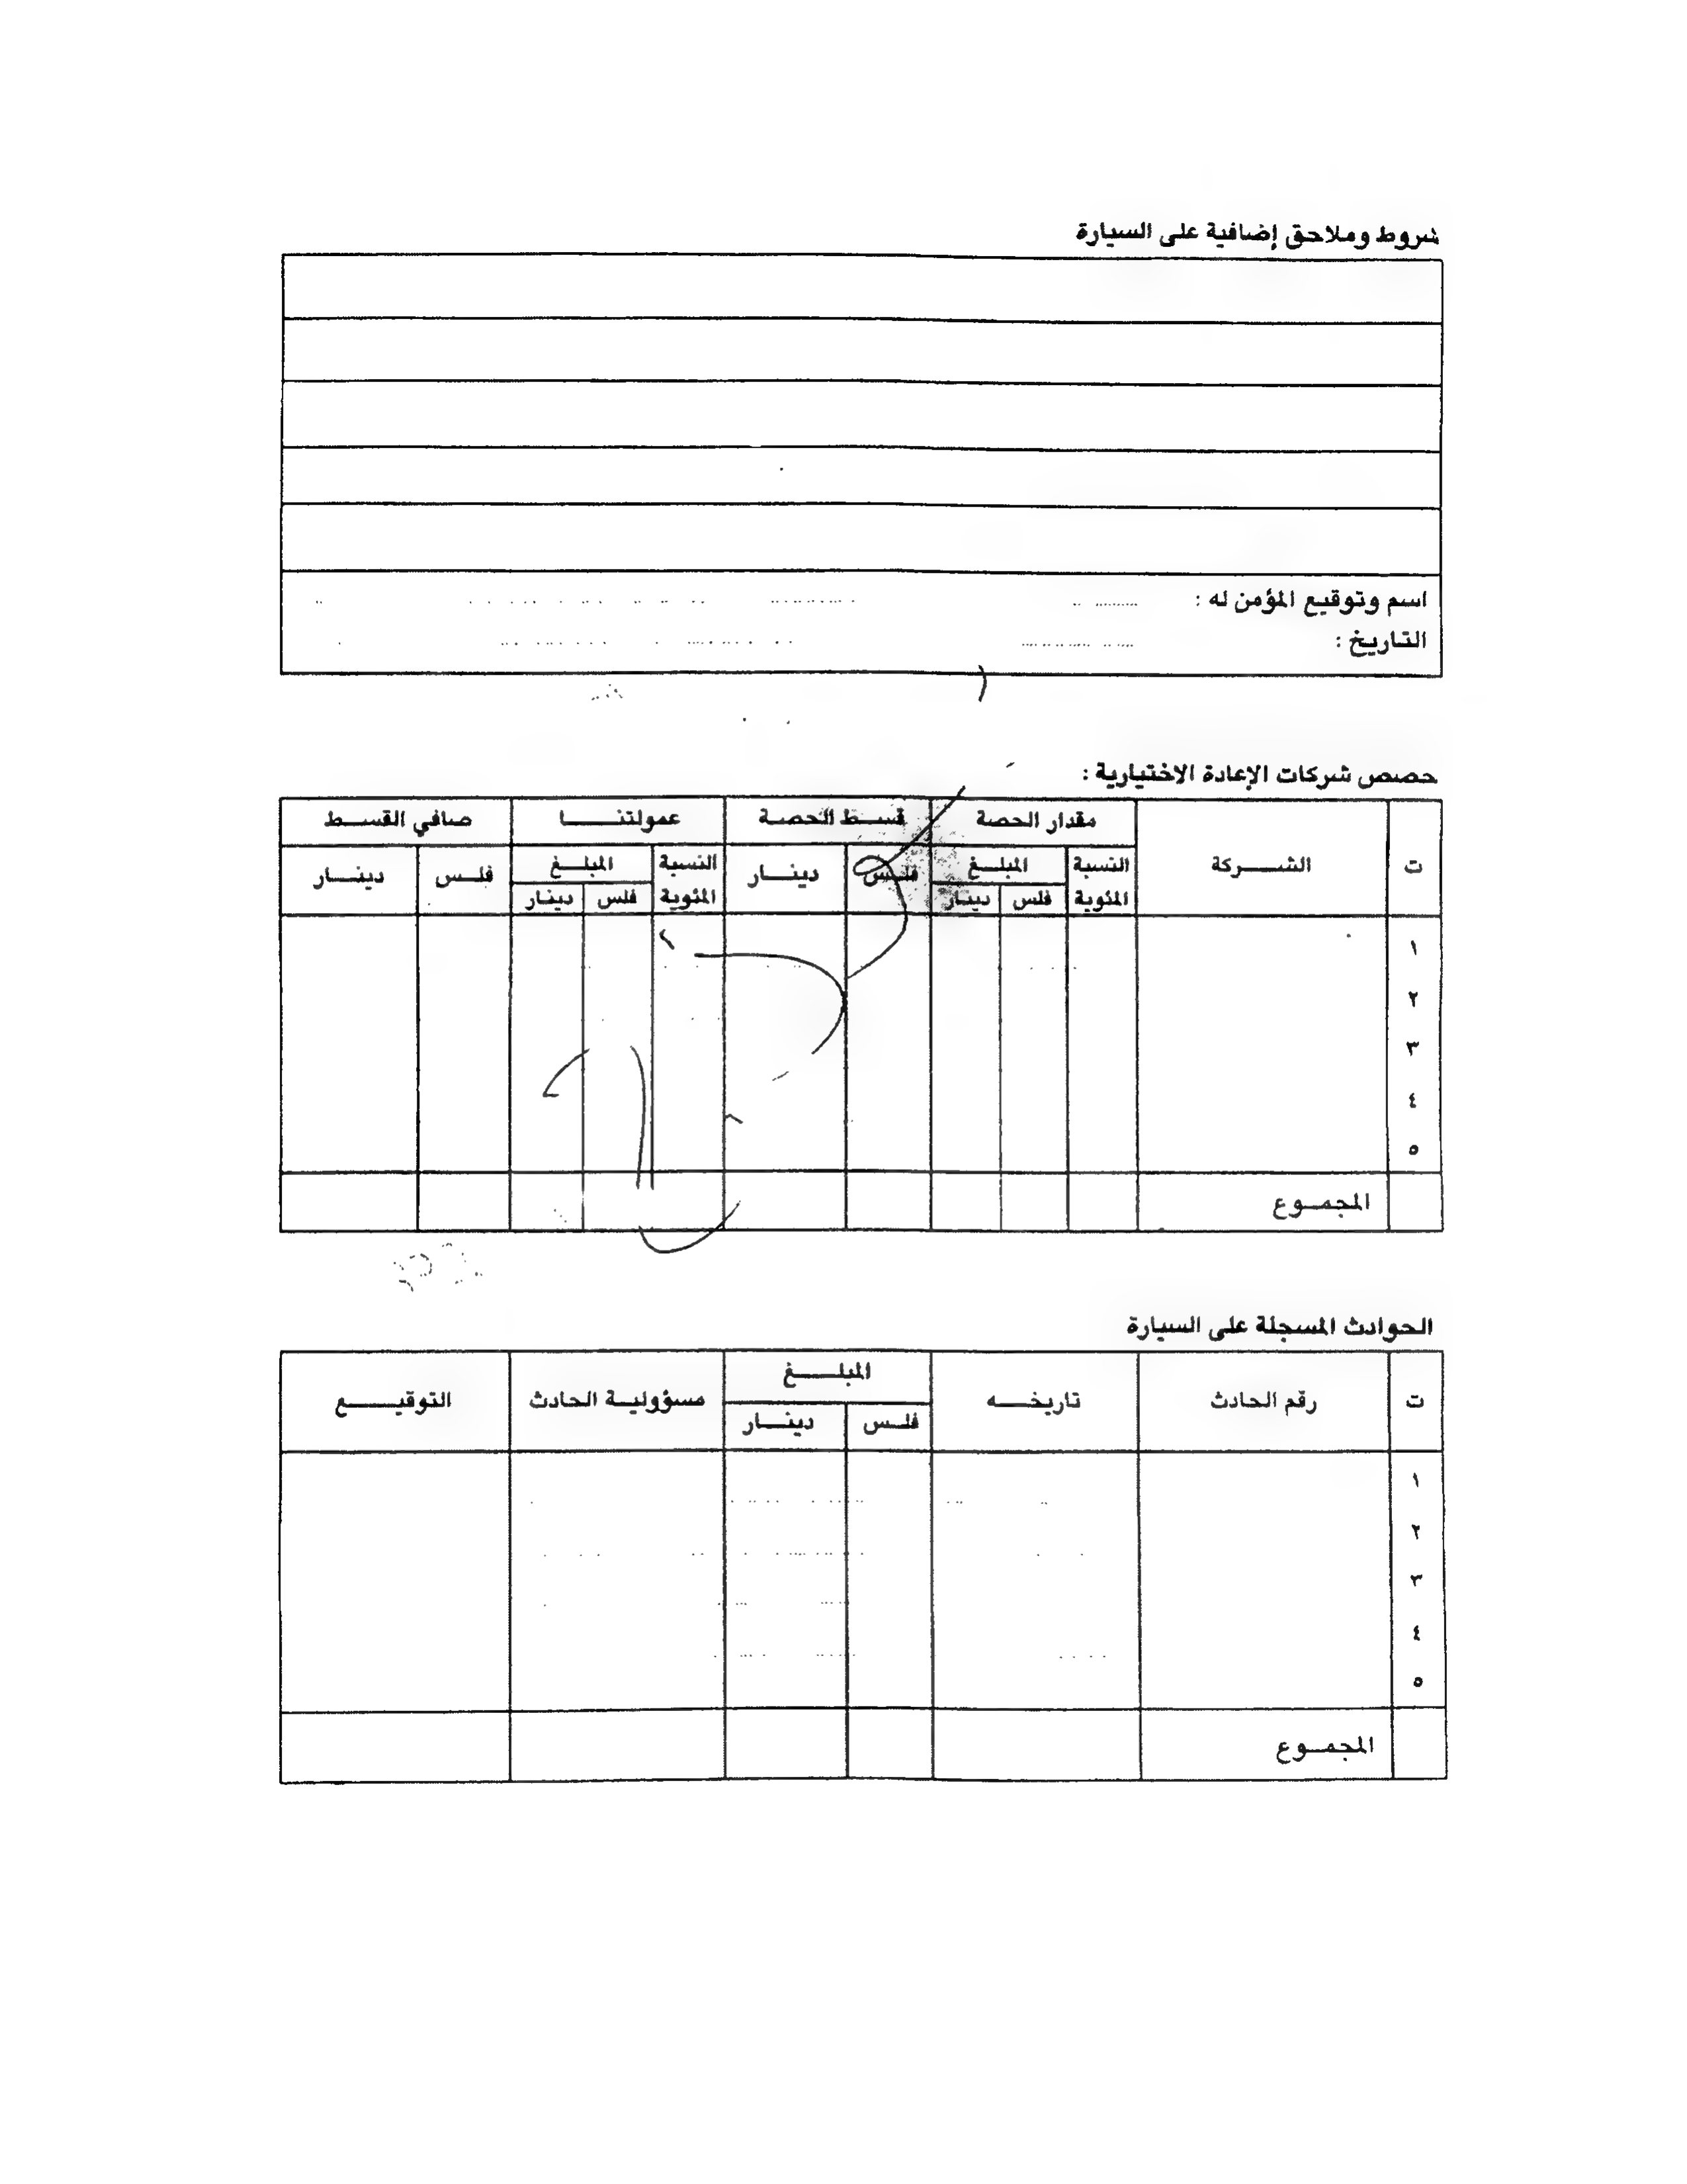 شروط وملاحق إضافية على السيارة
اسم وتوقيع المؤمن له :
التاريخ :
حصص شركات الإعادة الاختيارية :
ت الشركة مقدار الحصة قسط الحصة عمولتنا صافي القسط
النسبة المئوية المبلغ فلس دينار النسبة المئوية المبلغ فلس دينار
فلس دينار فلس دينار
١
٢
٣
٤
٥
المجموع
الحوادث المسجلة على السيارة
ت رقم الحادث تاريخه المبلغ مسؤولية الحادث التوقيع
فلس دينار
١
٢
٣
٤
٥
المجموع